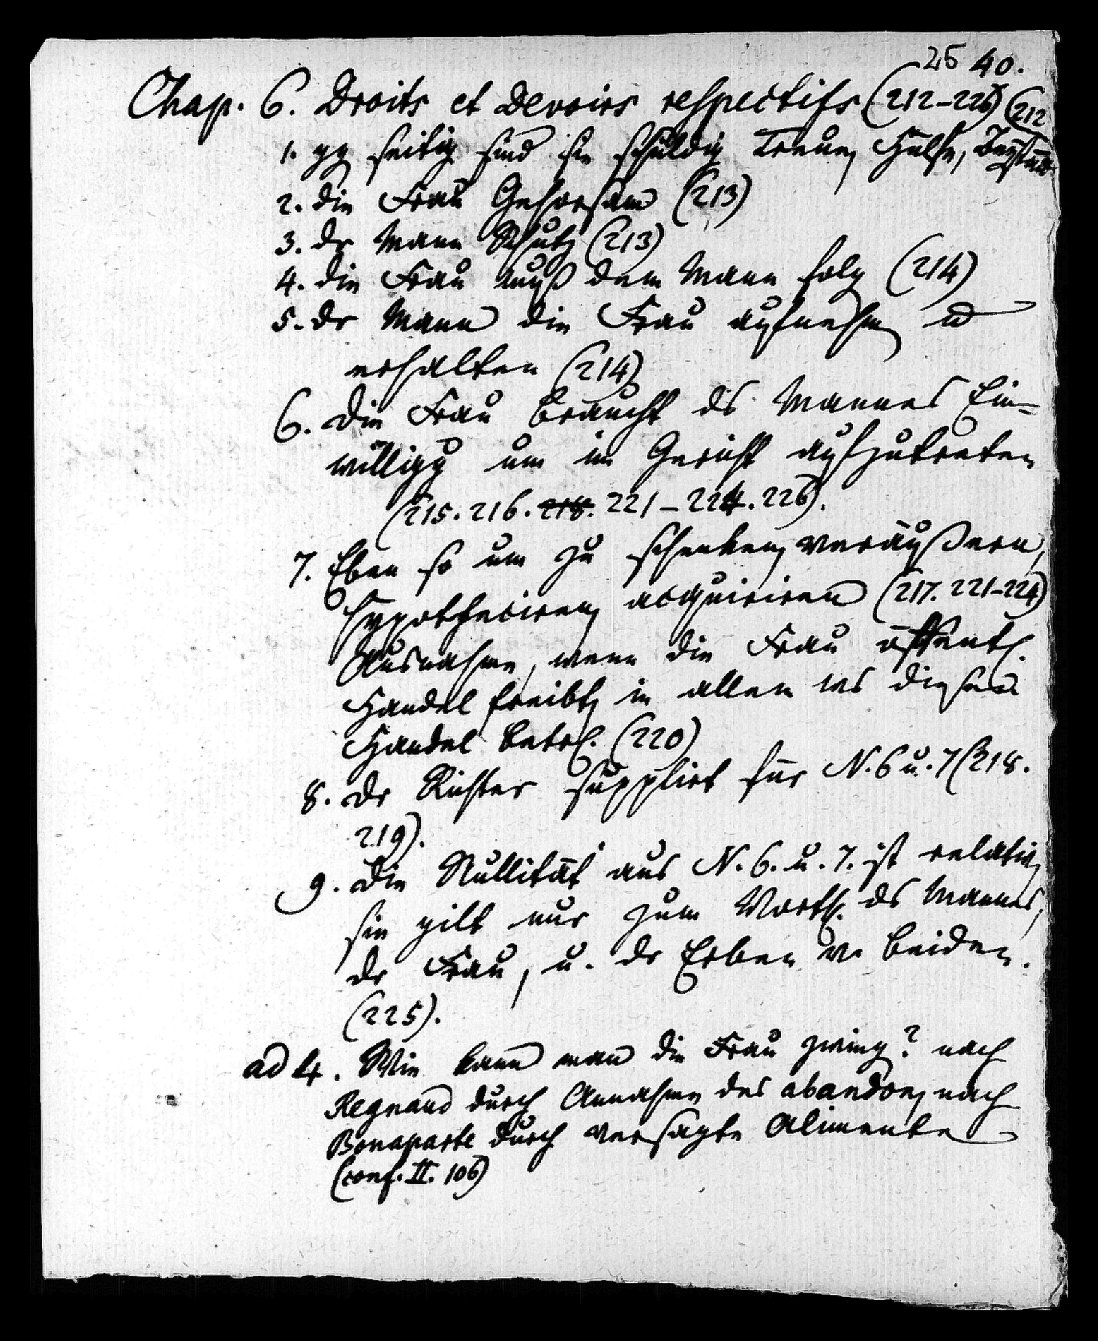 25 40.
Chap. 6. Droits et Devoirs respectifs (212–226) (212
1. ggseitig sind sie schuldig Treue, Hülfe, Beystand
2. die Frau Gehorsam (213)
3. dr Mann Schutz (213)
4. die Frau muß dem Mann folg (214)
5. dr Mann die Frau aufnehm u
erhalten (214)
6. die Frau braucht ds Mannes Ein=
willigg um im Gericht aufzutreten
(215. 216. 218. 221–224. 226).
7. Eben so um zu schenken, veräußern,
hypotheciren, acquiriren (217. 221–224)
Ausnahme, wenn die Frau öffentl.
Handel treibt, in allem was diesen
Handel betrf. (220)
8. dr Richter supplirt für N. 6 u. 7 (218.
219).
9. die Nullität aus N. 6. u. 7. ist relativ,
sie gilt nur zum Vorth. ds Mannes,
dr Frau, u. dr Erben v. beiden.
(225).
ad 4. Wie kann man die Frau zwing? nach
Regnaud durch Annahme des abandon, nach
Bonaparte durch versagte Alimente
(conf. II. 106)